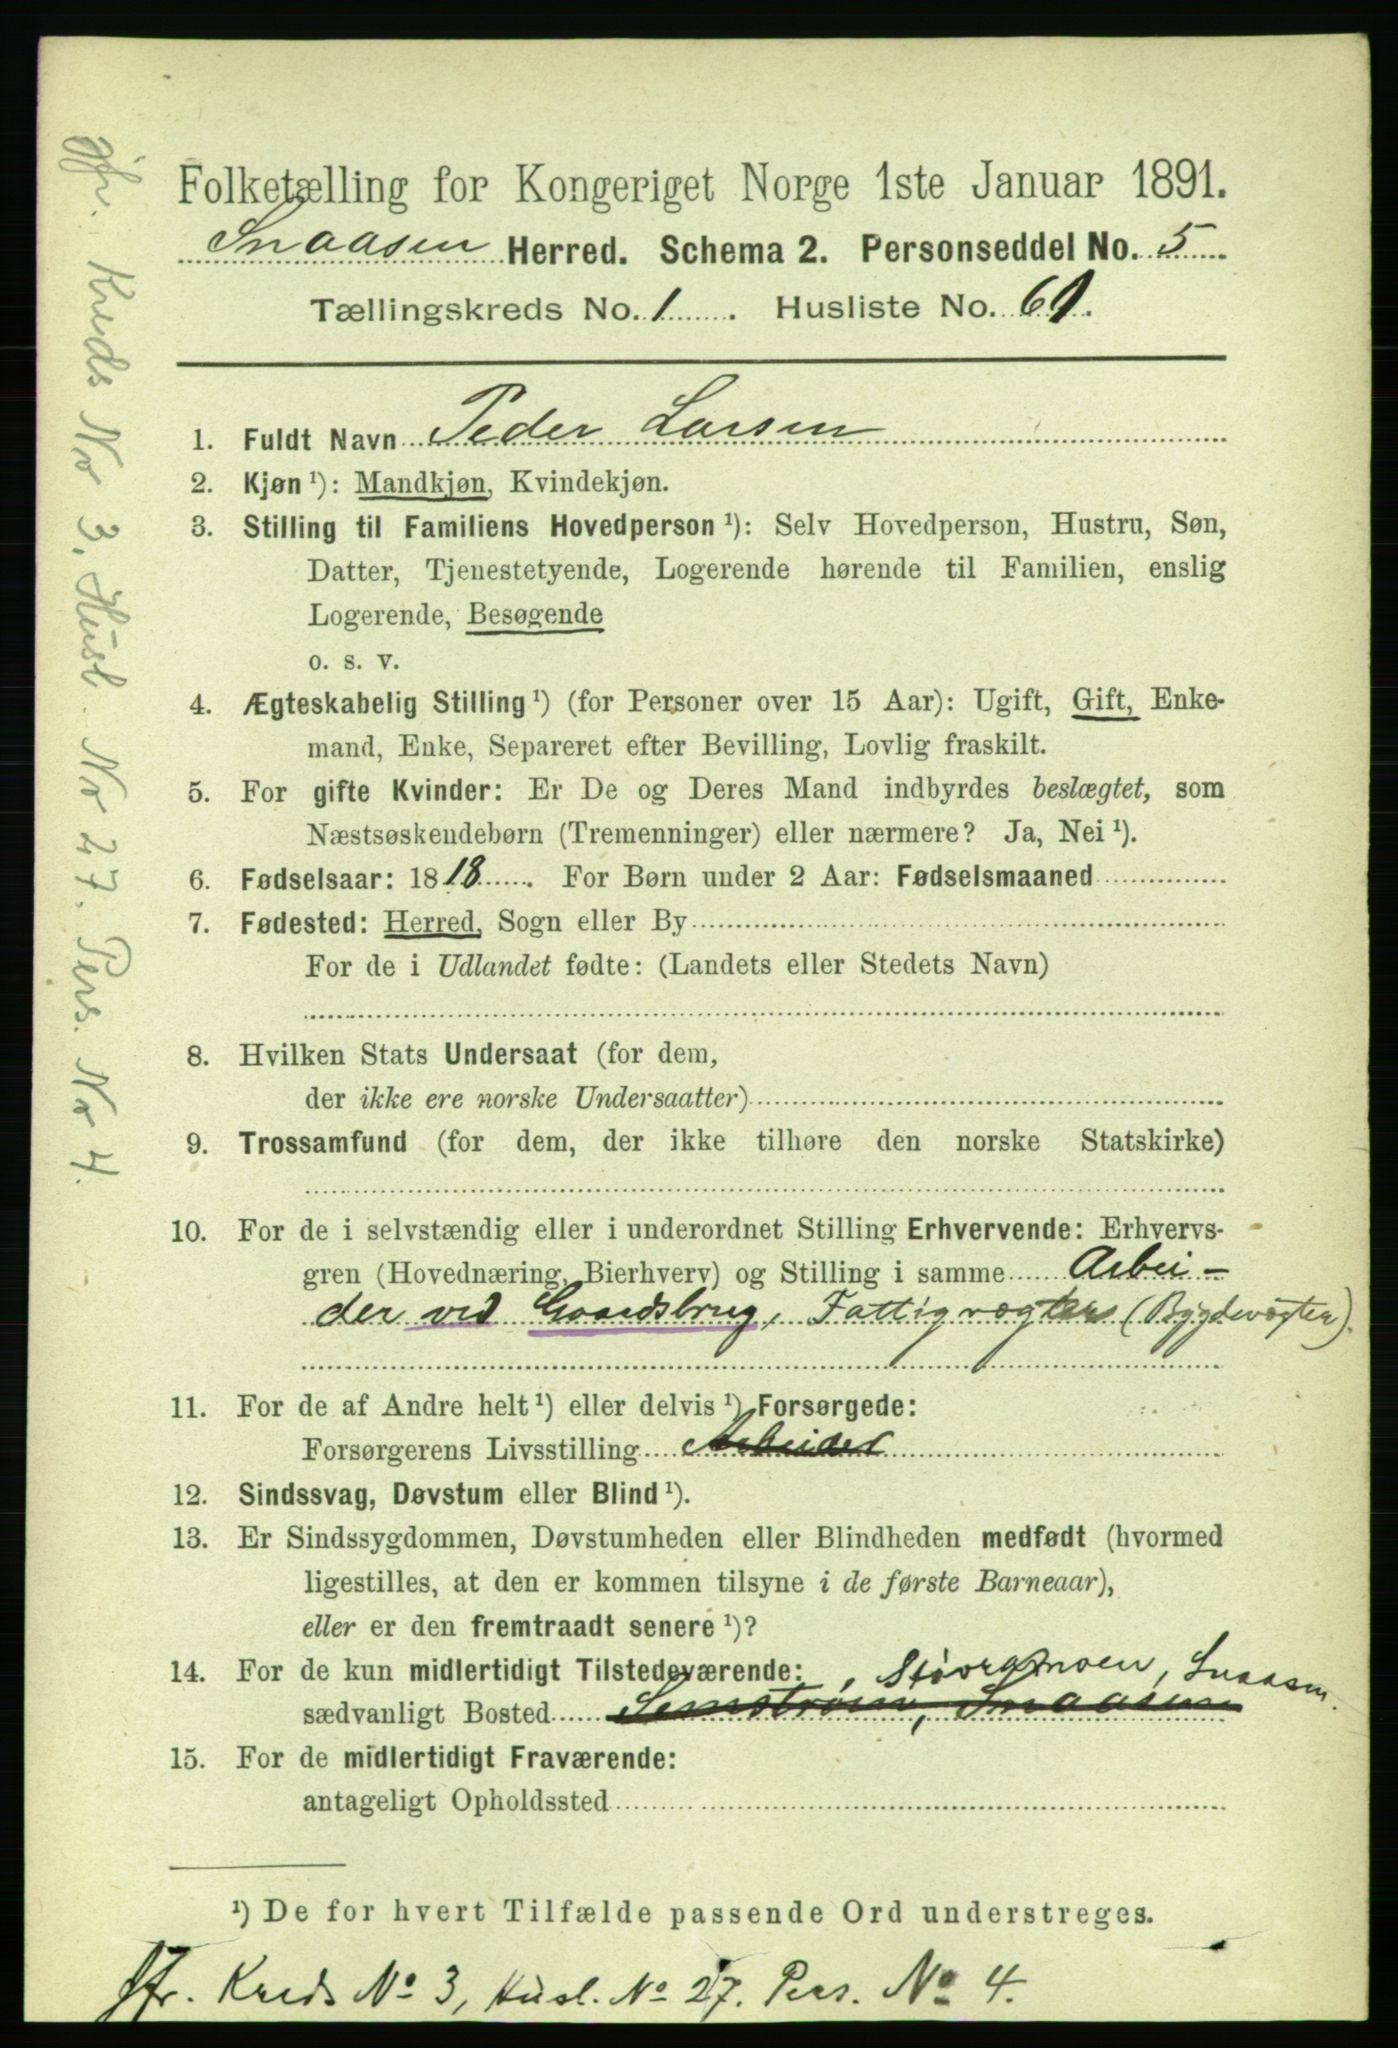 Folketælling for Kongeriget Norge 1ste Januar 1891.
Snaasen Herred. Schema 2. Personseddel No. 5
Tællingskreds No. 1. Husliste No. 61.
1. Fuldt Navn Peder Larsen
2. Kjøn ¹): Mandkjøn, Kvindekjøn.
3. Stilling til Familiens Hovedperson ¹): Selv Hovedperson, Hustru, Søn,
Datter, Tjenestetyende, Logerende hørende til Familien, enslig
Logerende, Besøgende
o. s. v.
4. Ægteskabelig Stilling ¹) (for Personer over 15 Aar): Ugift, Gift, Enke-
mand, Enke, Separeret efter Bevilling, Lovlig fraskilt.
5. For gifte Kvinder: Er De og Deres Mand indbyrdes beslægtet, som
Næstsøskendebørn (Tremenninger) eller nærmere? Ja, Nei ¹).
6. Fødselsaar: 1818. For Børn under 2 Aar: Fødselsmaaned
7. Fødested: Herred, Sogn eller By
For de i Udlandet fødte: (Landets eller Stedets Navn)
8. Hvilken Stats Undersaat (for dem,
der ikke ere norske Undersaatter)
9. Trossamfund (for dem, der ikke tilhøre den norske Statskirke)
10. For de i selvstændig eller i underordnet Stilling Erhvervende: Erhvervs-
gren (Hovednæring, Bierhverv) og Stilling i samme Arbei-
der ved Gaardsbrug, Fattigvogter (Bygdevogter).
11. For de af Andre helt ¹) eller delvis ¹) Forsørgede:
Forsørgerens Livsstilling Arbeider
12. Sindssvag, Døvstum eller Blind ¹).
13. Er Sindssygdommen, Døvstumheden eller Blindheden medfødt (hvormed
ligestilles, at den er kommen tilsyne i de første Barneaar),
eller er den fremtraadt senere ¹)?
14. For de kun midlertidigt Tilstedeværende: , Snaasen.
sædvanligt Bosted Snaasen
15. For de midlertidigt Fraværende:
antageligt Opholdssted
¹) De for hvert Tilfælde passende Ord understreges.
jfr. Kreds No 3, Husl. No 27. Pers. No 4.
jfr. Kreds No 3, Husl. No 27. Pers. No 4.